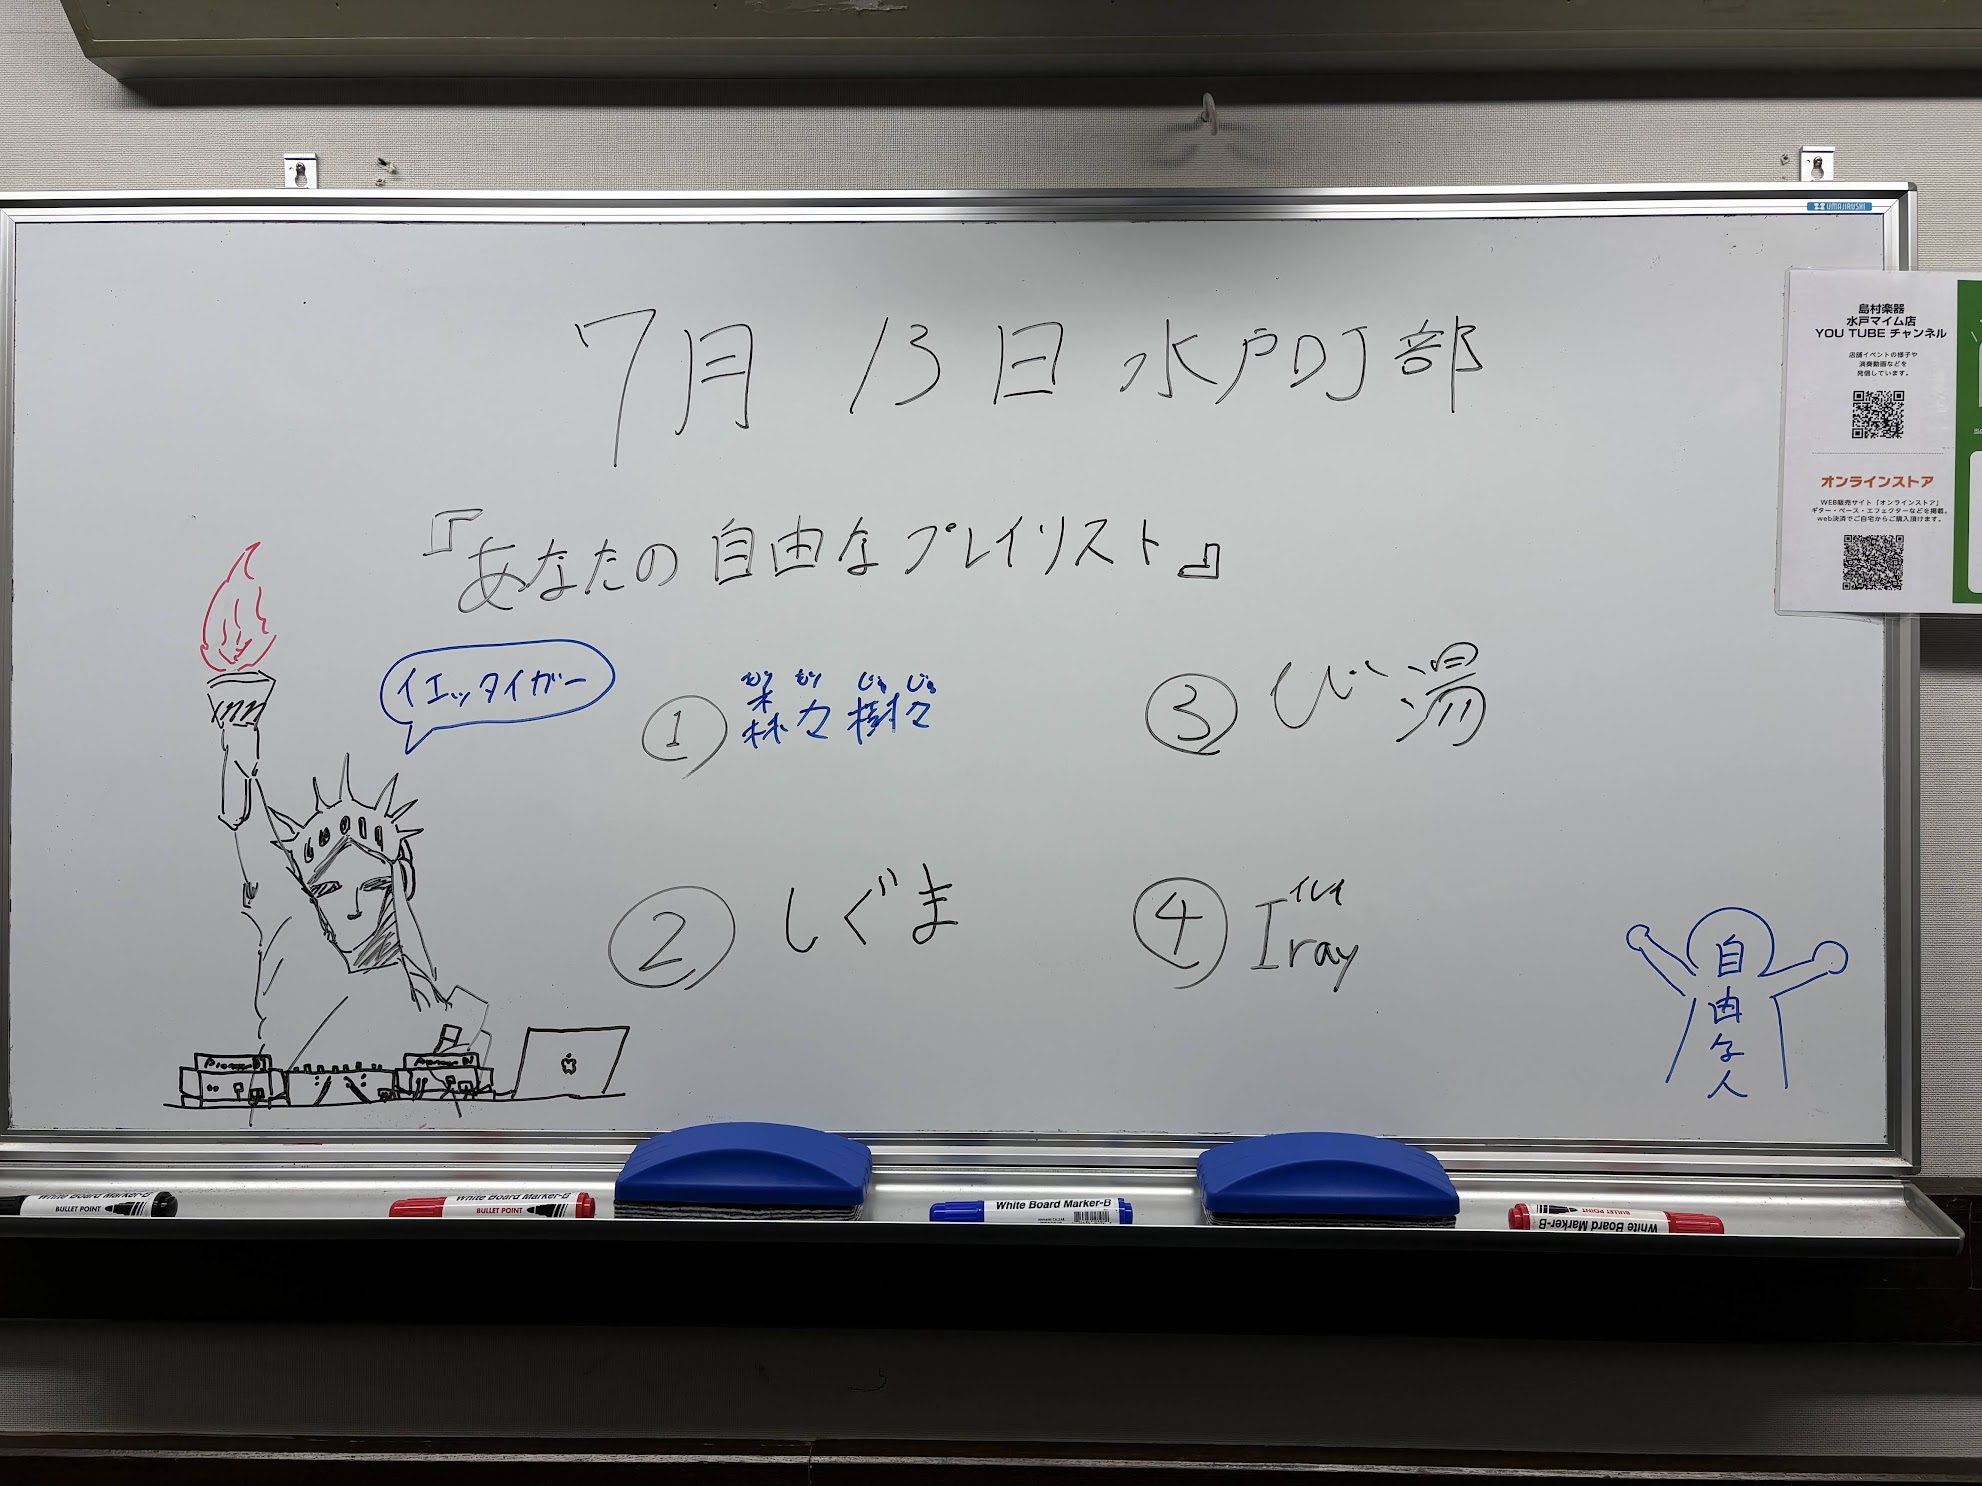 UMAJIRUSHI
7月 13日 水戸DJ部
『あなたの自由なプレイリスト』
イエッタイガー
① 森々樹々
もり もり じゅ じゅ
② しぐま
③ び湯
④ Iray
イレイ
自由な人
Pioneer DJ
島村楽器
水戸マイム店
YOU TUBE チャンネル
店舗イベントの様子や
演奏動画などを
発信しています。
オンラインストア
WEB販売サイト「オンラインストア」
ギター・ベース・エフェクターなどを掲載。
web決済でご自宅からご購入頂けます。
White Board Marker-B
BULLET POINT
White Board Marker-B
BULLET POINT
White Board Marker-B
White Board Marker-B
BULLET POINT